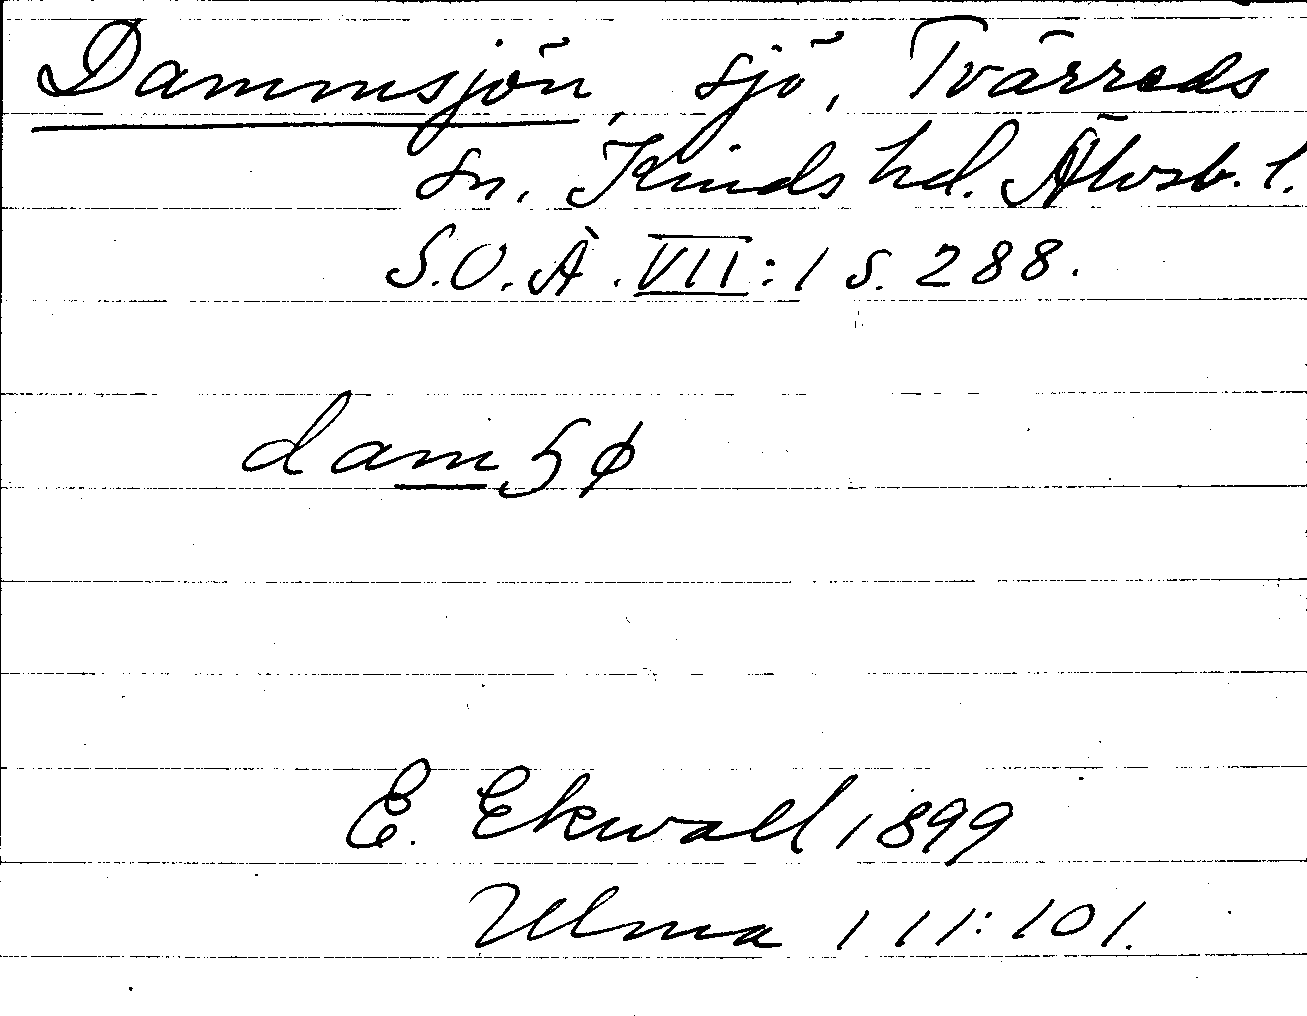 Dammsjön, sjö, Tvärreds
sn. Kinds hd. Älvsb. l.
S.O.Ä. VII:1 s. 288.
damɧø
E. Ekwall 1899
Ulma 111:101.